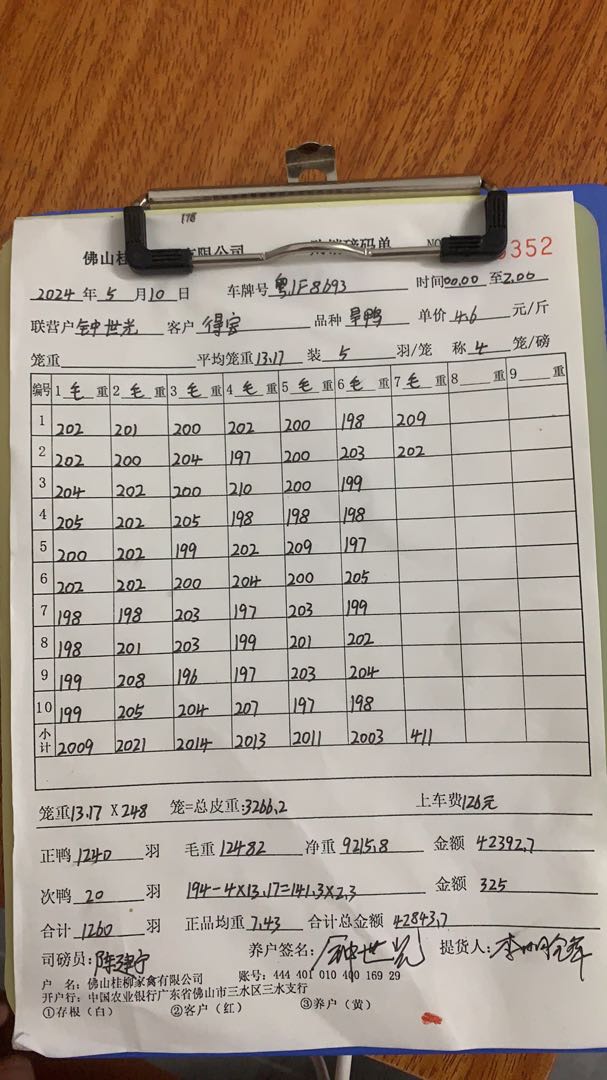 178
佛山桂 有限公司 购销磅码单 NO 352
2024 年 5 月 10 日 车牌号 粤JF8693 时间 00.00 至 2.00
联营户 钟世光 客户 得宏 品种 旱鸭 单价 4.6 元/斤
笼重 平均笼重 13.17 装 5 羽/笼 称 4 笼/磅
编号 1 毛 重 2 毛 重 3 毛 重 4 毛 重 5 毛 重 6 毛 重 7 毛 重 8 重 9 重
1 202 201 200 202 200 198 209
2 202 200 204 197 200 203 202
3 204 202 200 210 200 199
4 205 202 205 198 198 198
5 200 202 199 202 209 197
6 202 202 200 204 200 205
7 198 198 203 197 203 199
8 198 201 203 199 201 202
9 199 208 196 197 203 204
10 199 205 204 207 197 198
小计 2009 2021 2014 2013 2011 2003 411
笼重 13.17 X 248 笼=总皮重: 3266.2 上车费 126元
正鸭 1240 羽 毛重 12482 净重 9215.8 金额 42392.7
次鸭 20 羽 194-4X13.17=141.3X2.3 金额 325
合计 1260 羽 正品均重 7.43 合计总金额 42843.7
司磅员: 陈建宁 养户签名: 钟世光 提货人:
户 名: 佛山桂柳家禽有限公司 账号: 444 401 010 400 169 29
开户行: 中国农业银行广东省佛山市三水区三水支行
①存根(白) ②客户(红) ③养户(黄)